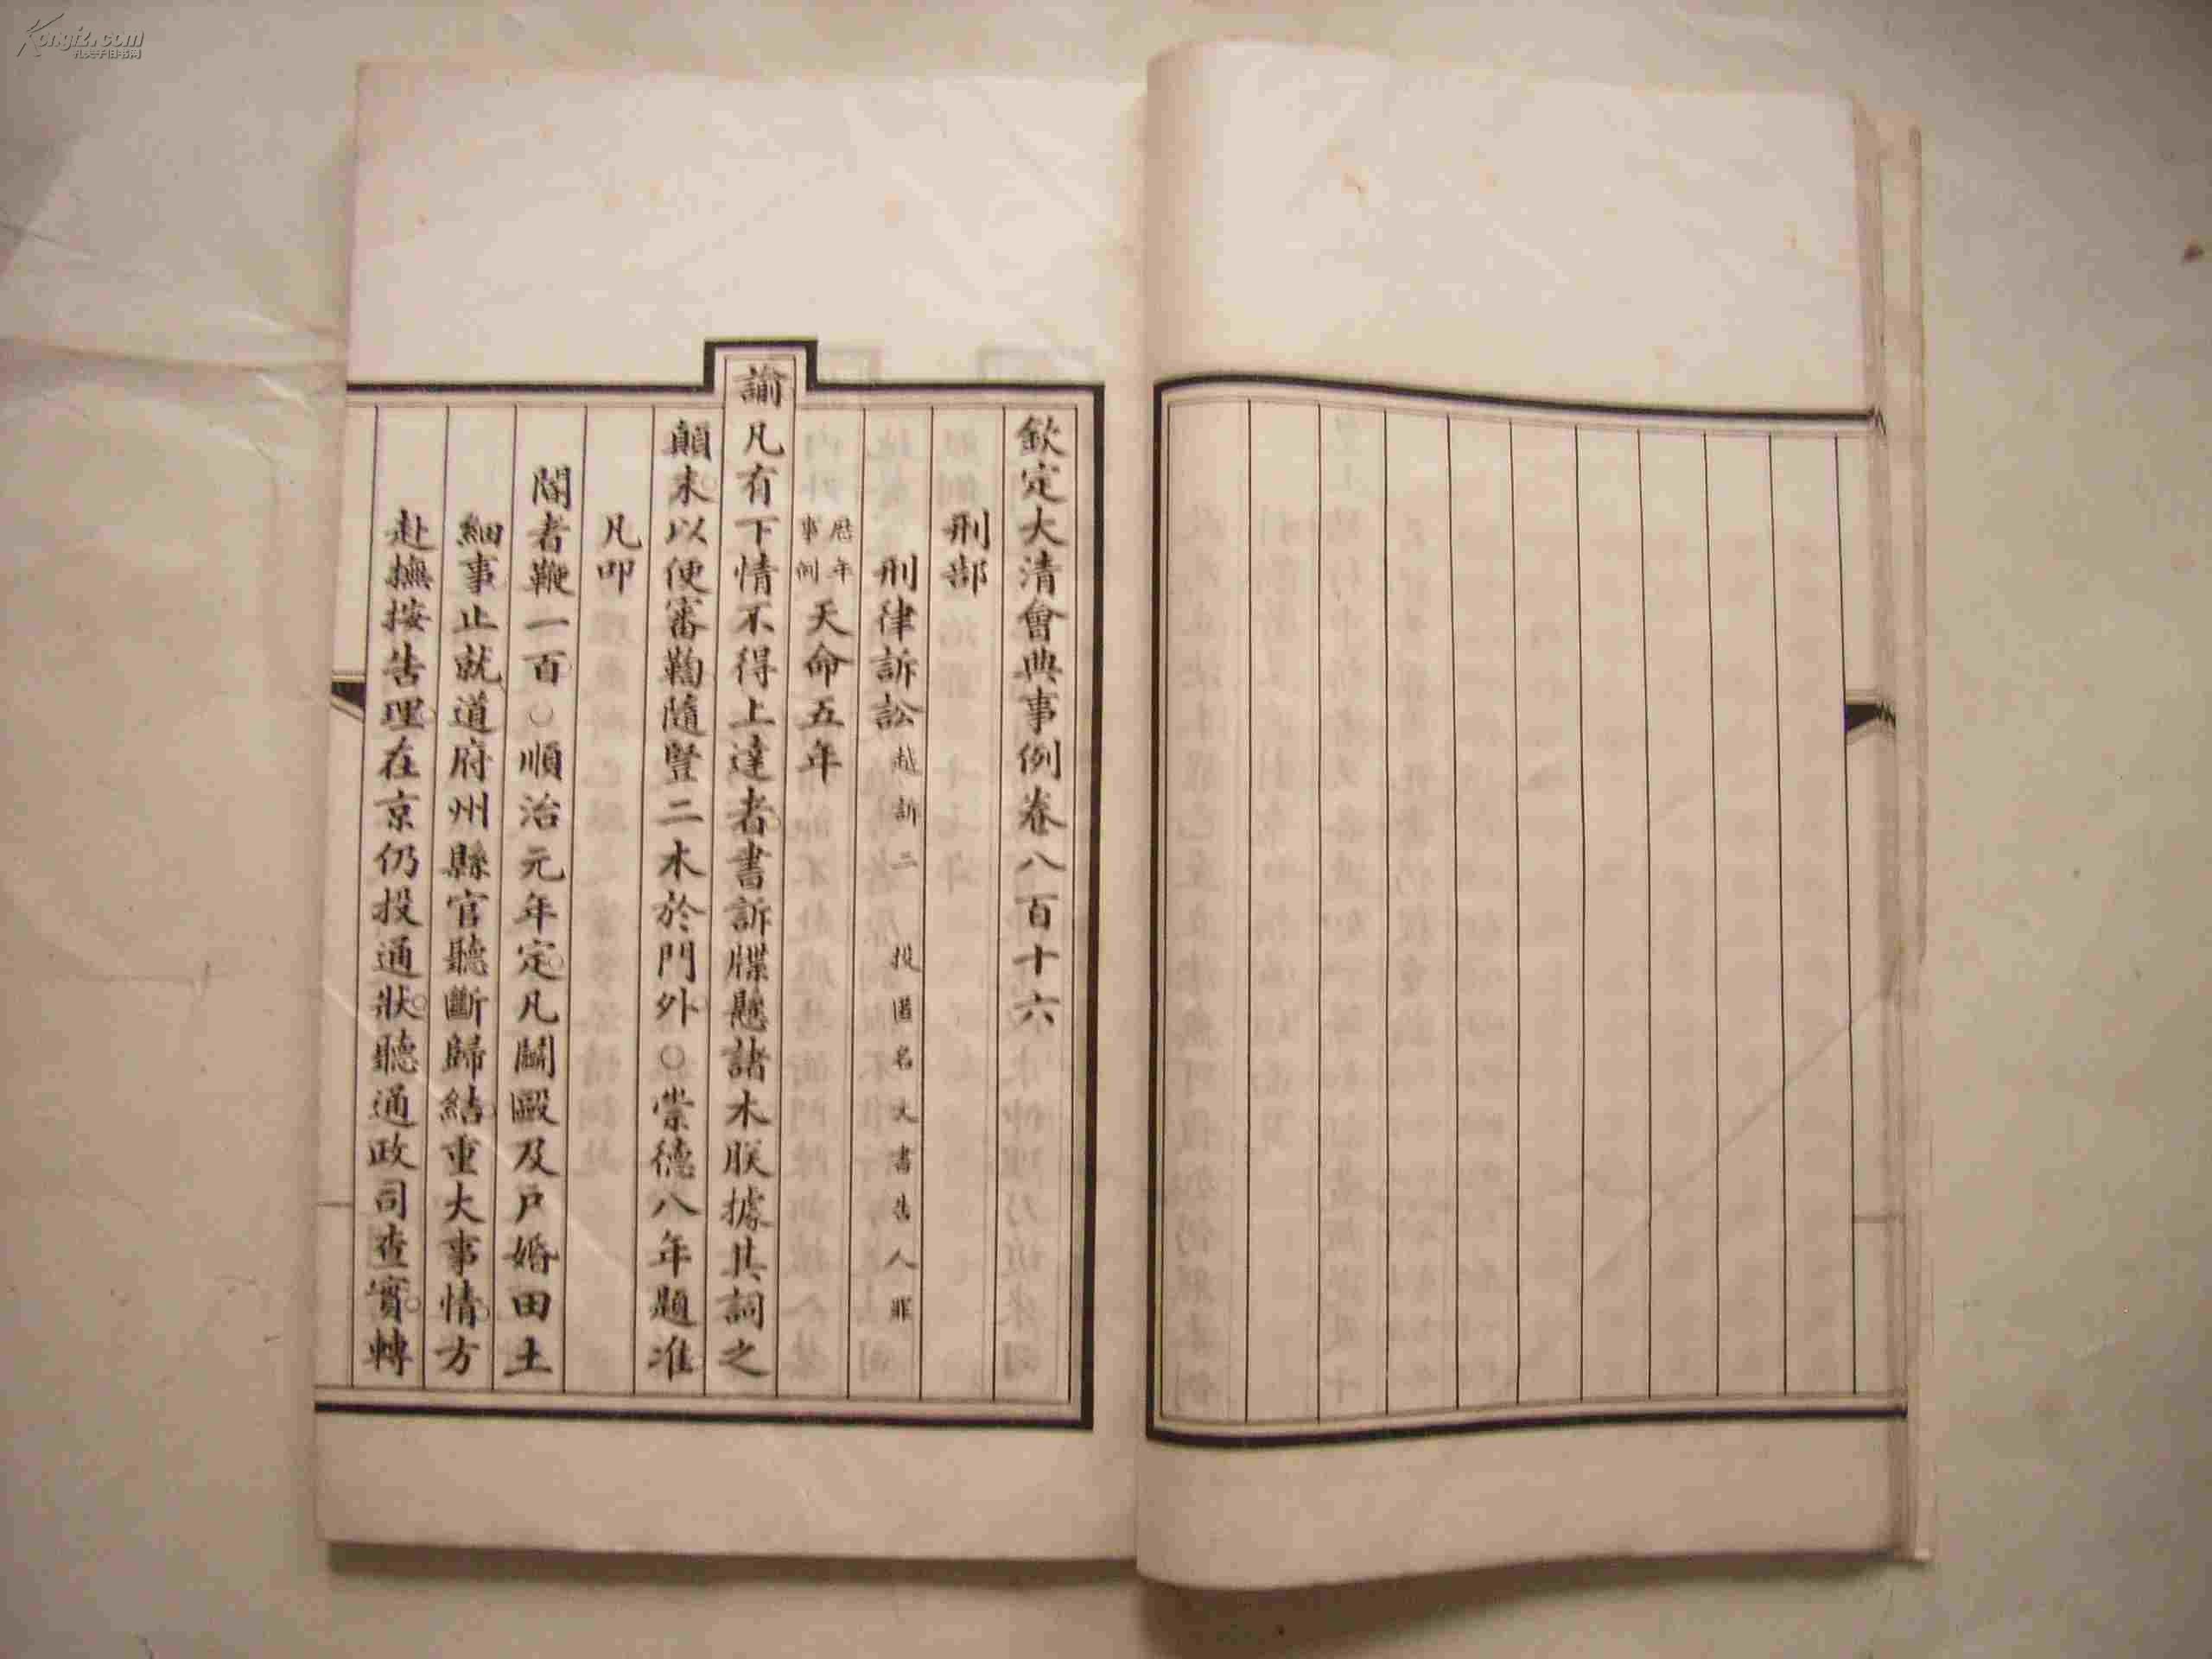 欽定大清會典事例卷八百十六
刑部
刑律訴訟 越訴二 投匿名文書告人罪
歷年事例 天命五年
諭凡有下情不得上達者書訴牒懸諸木朕據其詞之
顛末以便審鞫隨豎二木於門外○崇德八年題准
凡叩
閽者鞭一百○順治元年定凡鬬毆及戶婚田土
細事止就道府州縣官聽斷歸結重大事情方
赴撫按告理在京仍投通狀聽通政司查實轉
Kongfz.com
孔夫子旧书网